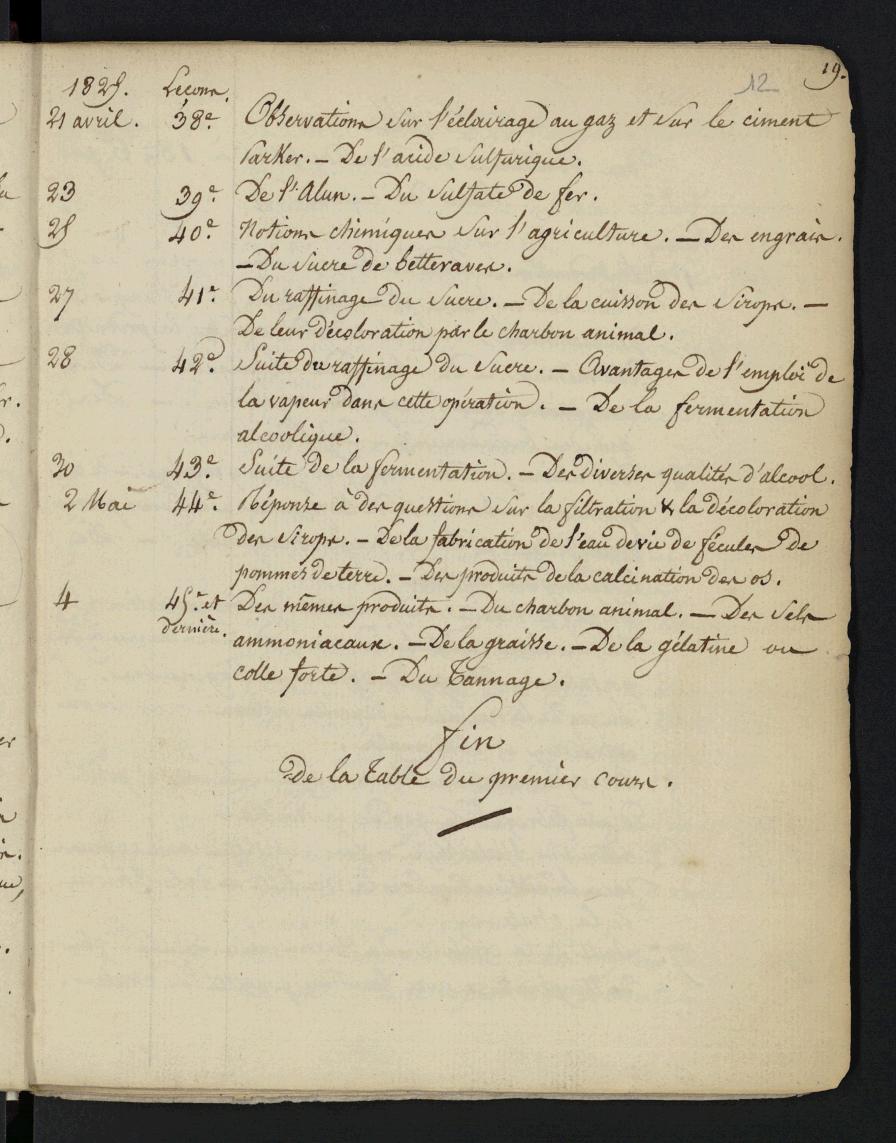 12 19.
1825. Leçons.
21 avril. 38e. Observations sur l'éclairage au gaz et sur le ciment
Parker. — De l'acide sulfurique.
23 39e. De l'Alun. — Du sulfate de fer.
25 40e. Notions chimiques sur l'agriculture. — Des engrais.
— Du sucre de betteraves.
27 41e. Du raffinage du sucre. — De la cuisson des sirops. —
De leur décoloration par le charbon animal.
28 42e. Suite du raffinage du sucre. — Avantages de l'emploi de
la vapeur dans cette opération. — De la fermentation
alcoolique.
30 43e. Suite de la fermentation. — Des diverses qualités d'alcool.
2 Mai 44e. Réponse à des questions sur la filtration & la décoloration
des sirops. — De la fabrication de l'eau de vie de fécules de
pommes de terre. — Des produits de la calcination des os.
4 45e. et Des mêmes produits. — Du charbon animal. — Des sels
dernière. ammoniacaux. — De la graisse. — De la gélatine ou
colle forte. — Du Tannage.
fin
de la Table du premier cours.